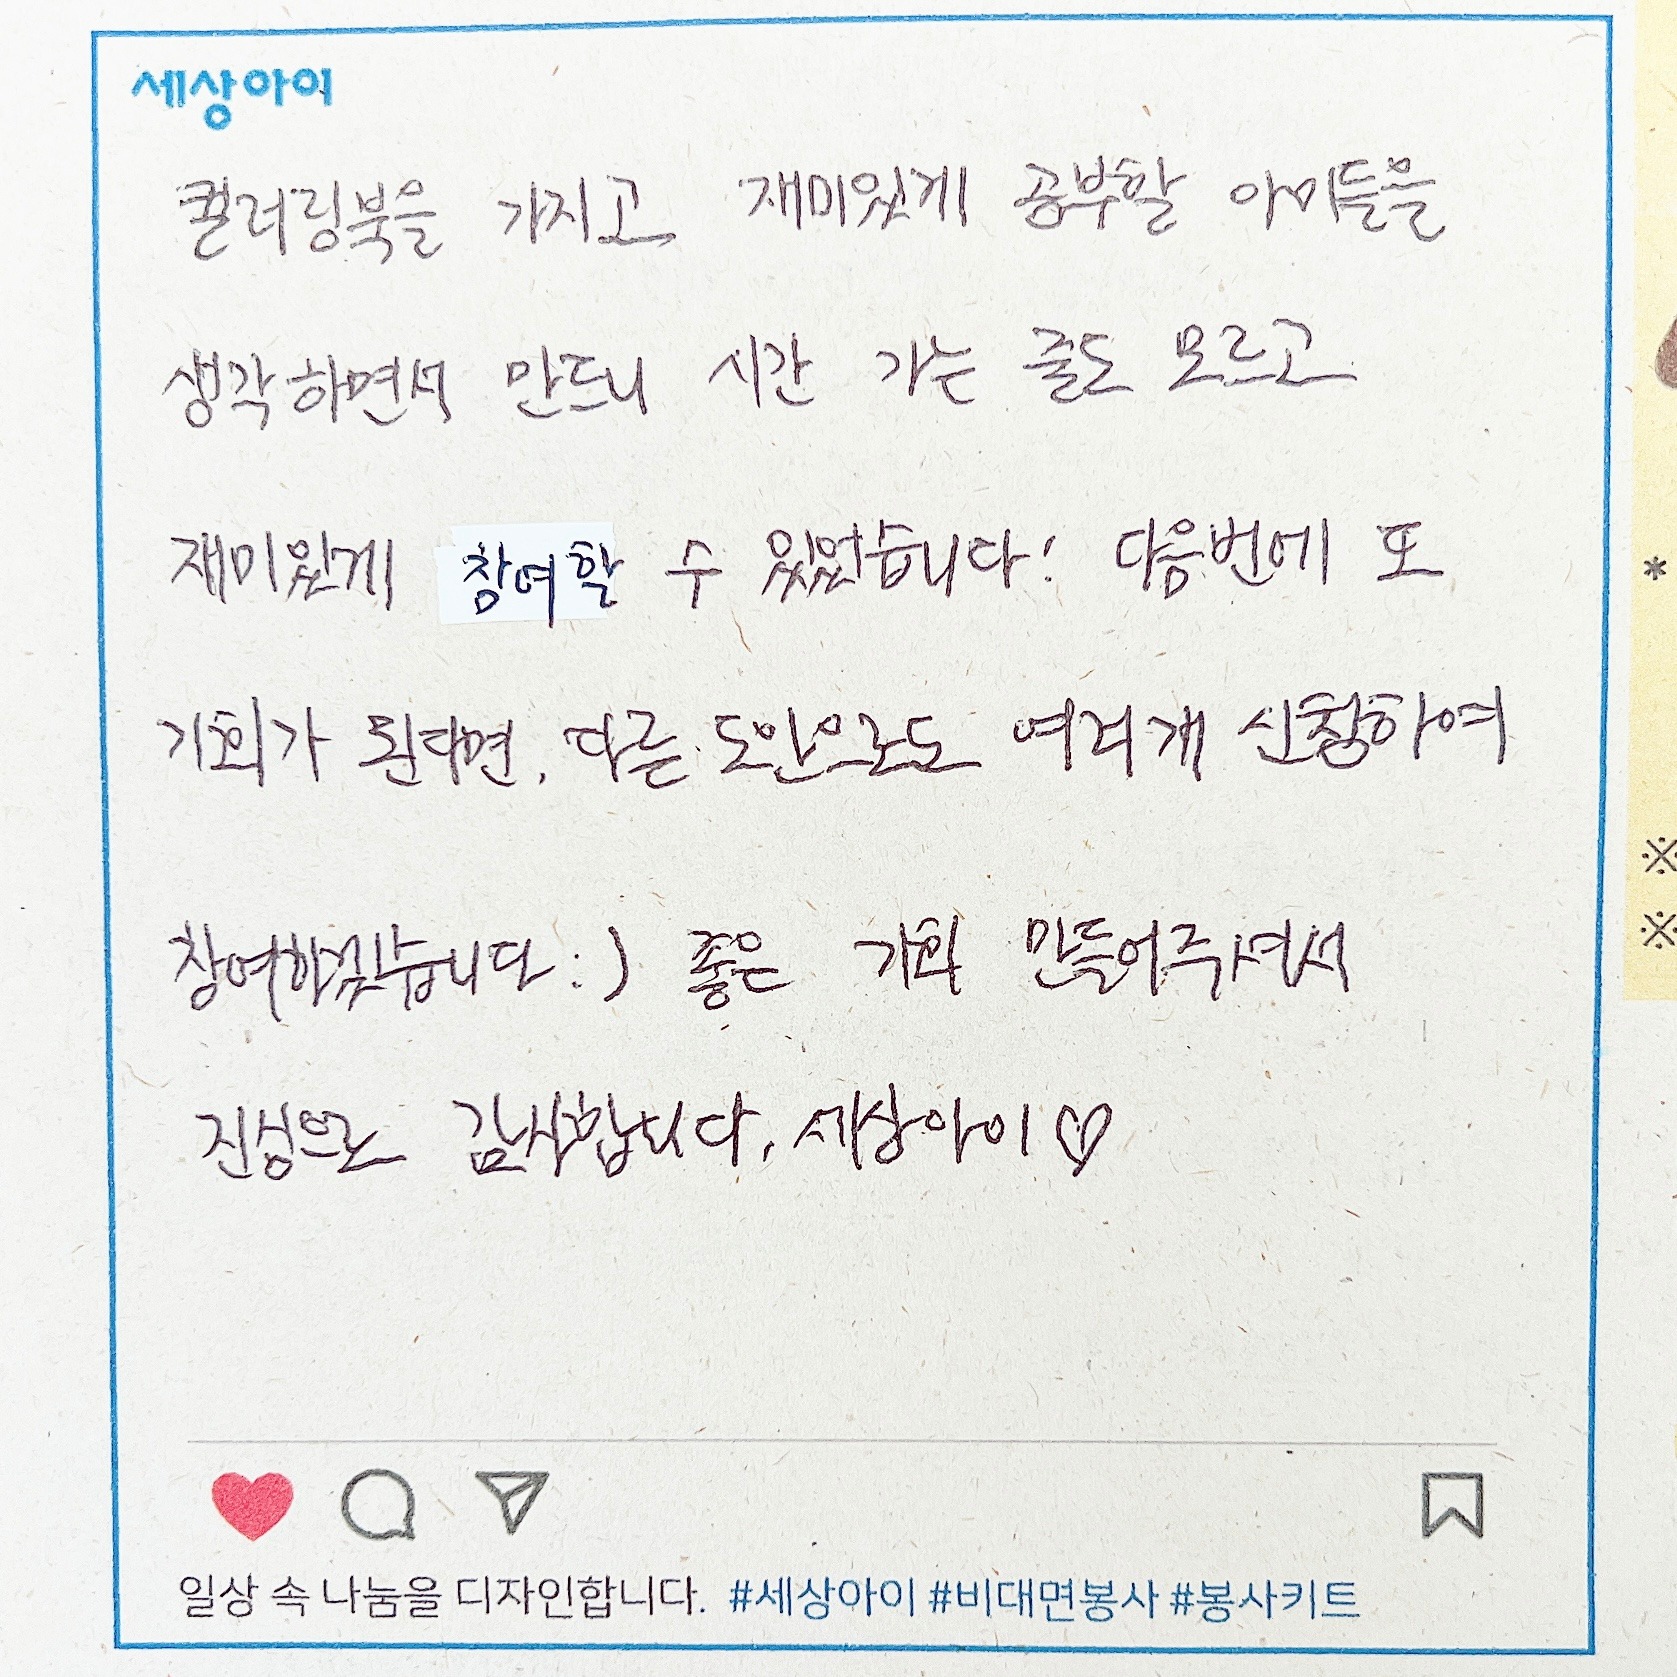 세상아이
컬러링북을 가지고 재미있게 공부할 아이들을
생각하면서 만드니 시간 가는 줄도 모르고
재미있게 참여할 수 있었습니다! 다음번에 또
기회가 된다면, 다른 도안으로도 여러개 신청하여
참여하겠습니다 :) 좋은 기회 만들어주셔서
진심으로 감사합니다, 세상아이♡
일상 속 나눔을 디자인합니다. #세상아이 #비대면봉사 #봉사키트
*
※
※